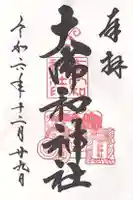 奉拝
大御和神社
令和六年十二月廿九日